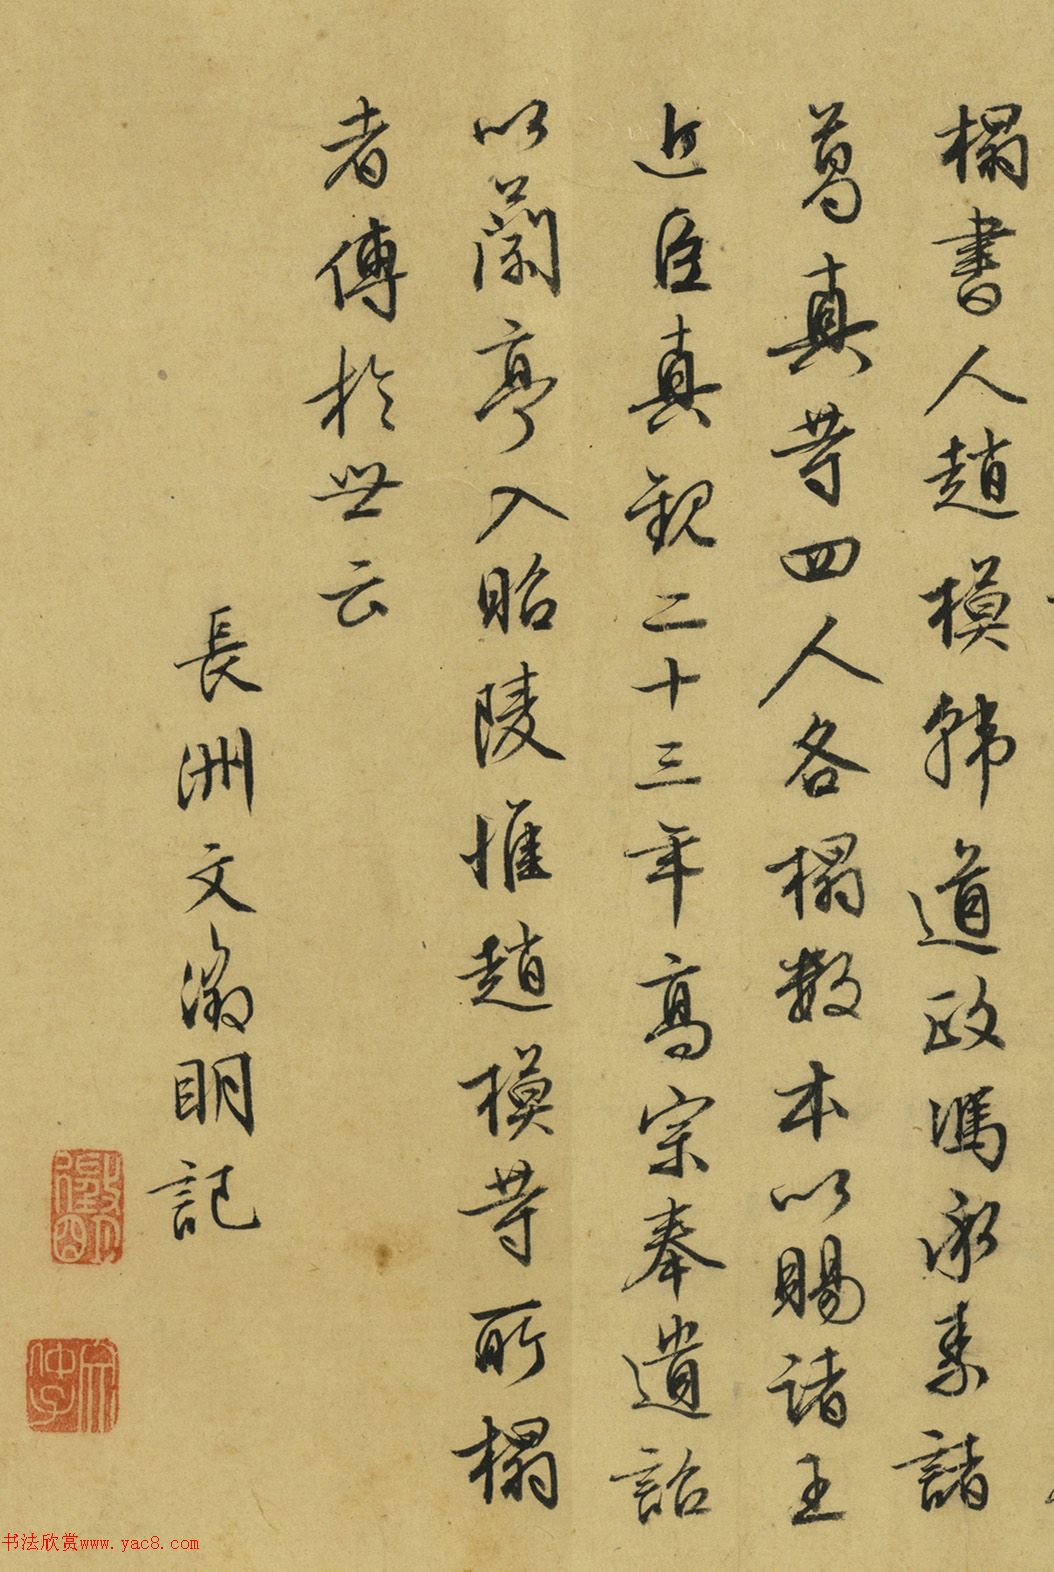 榻書人趙模韓道政馮承素諸
葛真等四人各榻數本以賜諸王
近臣真觀二十三年高宗奉遺詔
以蘭亭入昭陵惟趙模等所榻
者傳於世云
長洲文徵明記
徵明
文仲子
书法欣赏www.yac8.com